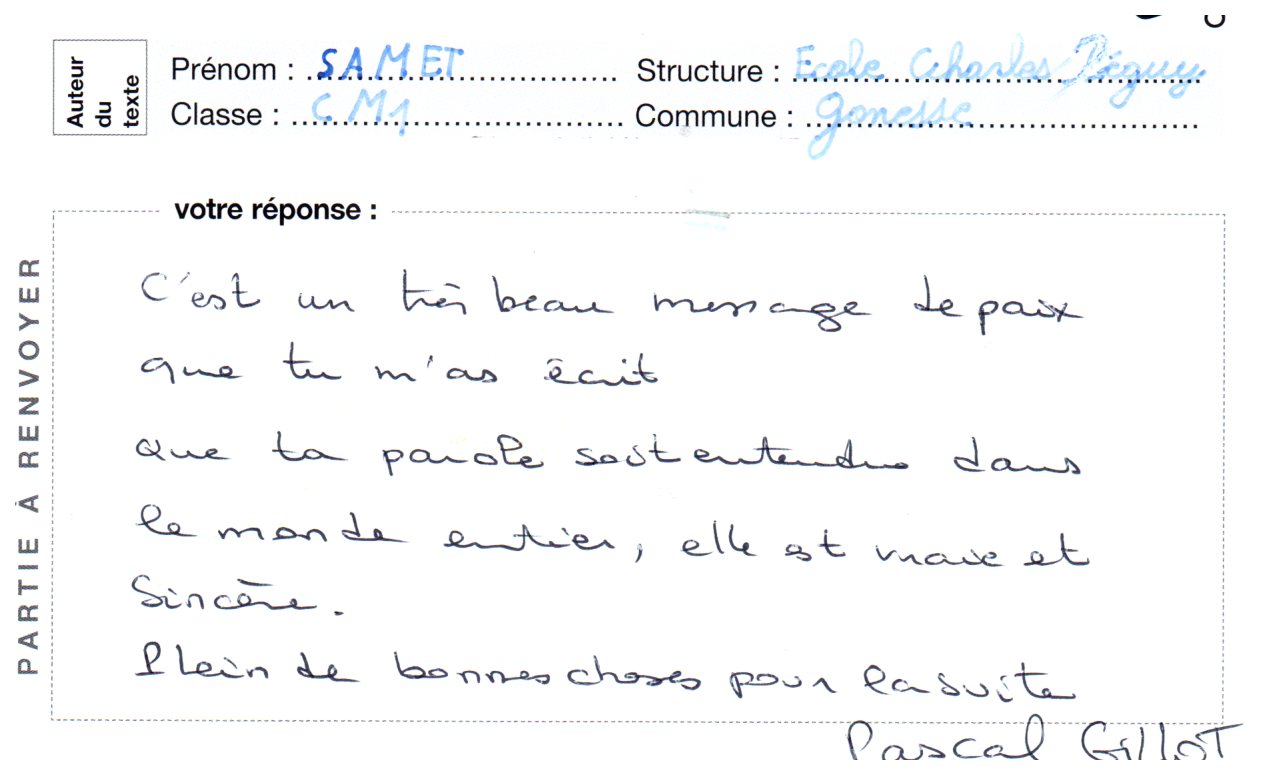 Auteur du texte
Prénom : SAMET Structure : Ecole Charles Péguy
Classe : CM1 Commune : Gonesse
votre réponse :
PARTIE A RENVOYER
C'est un très beau message de paix
que tu m'as écrit
que ta parole soit entendue dans
le monde entier, elle est vraie et
Sincère.
Plein de bonnes choses pour la suite
Pascal GilloT